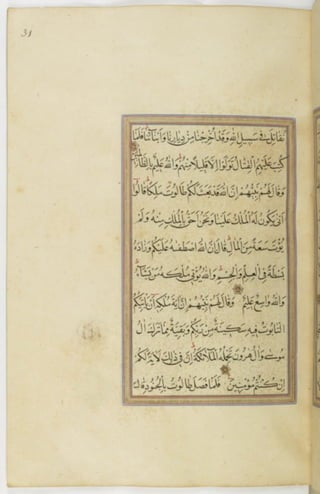 31
نُقَاتِلَ فِي سَبِيلِ اللهِ وَقَدْ أُخْرِجْنَا مِنْ دِيَارِنَا وَأَبْنَائِنَا فَلَمَّا
كُتِبَ عَلَيْهِمُ الْقِتَالُ تَوَلَّوْا إِلَّا قَلِيلًا مِنْهُمْ وَاللهُ عَلِيمٌ بِالظَّالِمِينَ
وَقَالَ لَهُمْ نَبِيُّهُمْ إِنَّ اللهَ قَدْ بَعَثَ لَكُمْ طَالُوتَ مَلِكًا قَالُوا
أَنَّى يَكُونُ لَهُ الْمُلْكُ عَلَيْنَا وَنَحْنُ أَحَقُّ بِالْمُلْكِ مِنْهُ وَلَمْ
يُؤْتَ سَعَةً مِنَ الْمَالِ قَالَ إِنَّ اللهَ اصْطَفٰهُ عَلَيْكُمْ وَزَادَهُ
بَسْطَةً فِي الْعِلْمِ وَالْجِسْمِ وَاللهُ يُؤْتِي مُلْكَهُ مَنْ يَشَاءُ
وَاللهُ وَاسِعٌ عَلِيمٌ وَقَالَ لَهُمْ نَبِيُّهُمْ إِنَّ آيَةَ مُلْكِهِ أَنْ يَأْتِيَكُمُ
التَّابُوتُ فِيهِ سَكِينَةٌ مِنْ رَبِّكُمْ وَبَقِيَّةٌ مِمَّا تَرَكَ آلُ
مُوسَى وَآلُ هَرُونَ تَحْمِلُهُ الْمَلَائِكَةُ إِنَّ فِي ذَلِكَ لَآيَةً لَكُمْ
إِنْ كُنْتُمْ مُؤْمِنِينَ فَلَمَّا فَصَلَ طَالُوتُ بِالْجُنُودِ قَالَ